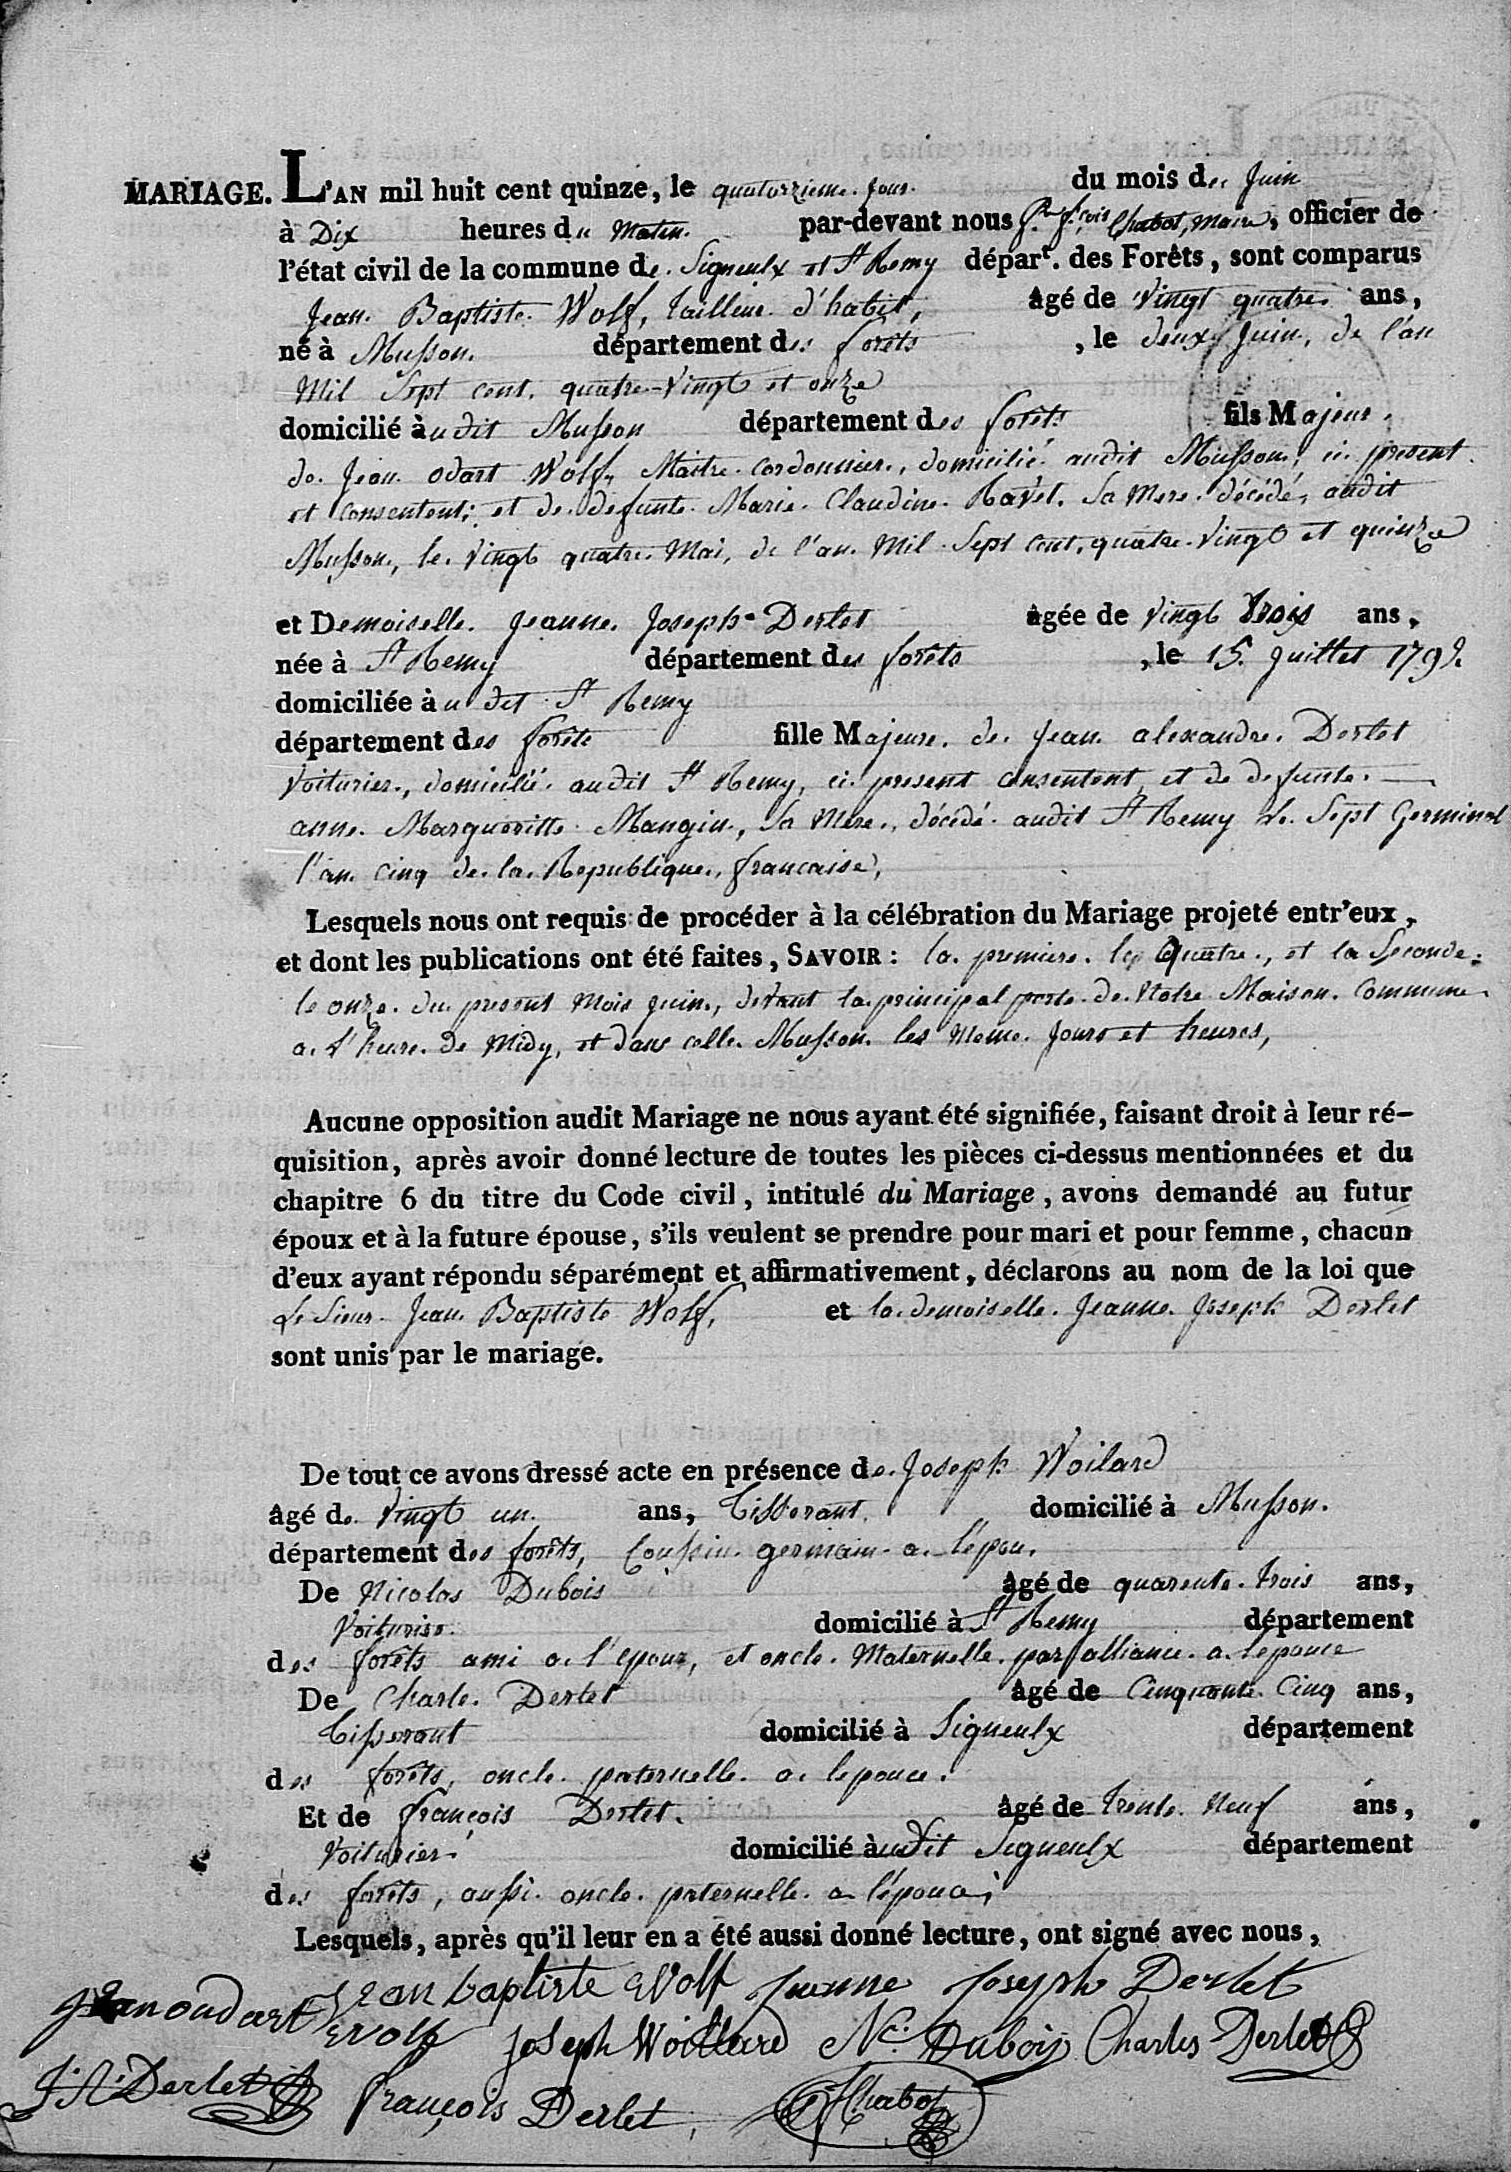 MARIAGE. L'AN mil huit cent quinze, le quatorzieme. Jour. du mois de Juin
à Dix heures du Matin. par-devant nous Chabot, Maire, officier de
l'état civil de la commune de. Signeulx et St Remy départ. des Forêts, sont comparus
Jean. Baptiste. Wolf, tailleur. d'habit, âgé de vingt quatre. ans,
né à Musson. département des forêts , le deux Juin, de l'an
Mil Sept cent, quatre-vingt et onze
domicilié àu dit Musson département des forêts fils Majeur.
de. Jean. odart Wolf, Maitre. cordonnier., domicilié audit Musson, ci present
et consentent; et de. defunte. Marie. Claudine. Ravet. Sa Mere. décédé, audit
Musson, le. vingt quatre. Mai, de l'an. Mil Sept cent, quatre. vingt et quinze
et Demoiselle. Jeanne. Joseph Derlet agée de vingt trois ans,
née à St Remy département des forêts , le 15. Juillet 1792.
domiciliée àu dit St Remy
département des forêts fille Majeure. de. Jean. alexandre. Derlet
Voiturier., domicilié. audit St Remy, ci. present consentent, et de defunte.
anne. Margueritte. Mangin., Sa Mere., décédé. audit St Remy Le. Sept Germinal
l'an. cinq de. la. Republique. francaise,
Lesquels nous ont requis de procéder à la célébration du Mariage projeté entr'eux,
et dont les publications ont été faites, SAVOIR : la. premiere. le Quatre., et la Seconde.
le onze. du present Mois Juin., devant la principal porte. de. Notre Maison. Commune
a. L'heure. de Midy, et dans celle. Musson. les Meme. Jours et heures,
Aucune opposition audit Mariage ne nous ayant été signifiée, faisant droit à leur ré-
quisition, après avoir donné lecture de toutes les pièces ci-dessus mentionnées et du
chapitre 6 du titre du Code civil, intitulé du Mariage, avons demandé au futur
époux et à la future épouse, s'ils veulent se prendre pour mari et pour femme, chacun
d'eux ayant répondu séparément et affirmativement, déclarons au nom de la loi que
Le Sieur. Jean Baptiste Wolf, et la. demoiselle. Jeanne. Joseph Derlet
sont unis par le mariage.
De tout ce avons dressé acte en présence de. Joseph Woilard
âgé de. Vingt un. ans, Tisserant. domicilié à Musson.
département des forêts, Coussin. germain. a. l'épou.
De Nicolas Dubois âgé de quarente. trois ans,
Voiturier. domicilié à St Remy département
des forêts ami a. l'epoux, et oncle. Maternelle. par alliance. a. lepouce
De Charle. Derlet âgé de Cinquante. Cinq ans,
Tisserant domicilié à Signeulx département
des forêts, oncle. paternelle. a. lepouce.
Et de françois Derlet. âgé de trente. Neuf ans,
Voiturier. domicilié àudit Signeulx département
des forêts, aussi. oncle. paternelle. a l'épouce;
Lesquels, après qu'il leur en a été aussi donné lecture, ont signé avec nous,
Jean oudart Jean baptiste Wolf Jeanne Joseph Derlet
Wolf Joseph Woillard Nc. Dubois Charles Derlet
J. A. Derlet françois Derlet, Chabot